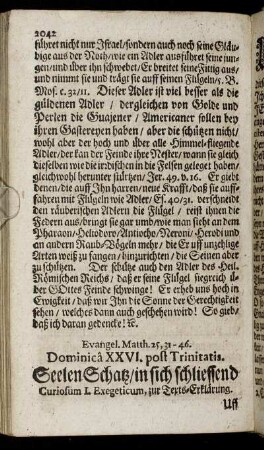 2042
führet nicht nur Israel/sondern auch noch seine Gläu-
bige aus der Noth/wie ein Adler ausführet seine jun-
gen/und über ihn schwebet/Er breitet seine Fittig aus/
und nimmt sie und trägt sie auff seinen Flügeln/5. B.
Mos. c. 32/11. Dieser Adler ist viel besser als die
güldenen Adler / dergleichen von Golde und
Perlen die Guajener / Americaner sollen bey
ihren Gastereyen haben / aber die schützen nicht/
wohl aber der hoch und über alle Himmel-fliegende
Adler/der kan der Feinde ihre Nester/ wann sie gleich
dieselben wie die irrdischen in die Felsen geleget haben/
gleichwohl herunter stürtzen/ Jer. 49. v. 16. Er giebt
denen/die auff Ihn harren/neue Krafft/daß sie auff-
fahren mit Flügeln wie Adler/ Es. 40/31. verschneidet
den räuberischen Adlern die Flügel / reist ihnen die
Federn aus/bringt sie gar um/wie man siehet an dem
Pharaon/Heliodoro/Antiocho/Neroni/Herodi und
an andern Raub-Vögeln mehr/die Er uff unzehlige
Arten weiß zu fangen/hinzurichten/die Seinen aber
zu schützen. Der schütze auch den Adler des Heil.
Römischen Reichs/ daß er seine Flügel siegreich ü-
ber GOttes Feinde schwinge! Er erheb uns hoch in
Ewigkeit / daß wir Ihn die Sonne der Gerechtigkeit
sehen/ welches dann auch geschehen wird! So gieb/
daß ich daran gedencke! &c.
Evangel. Matth. 25, 31-46.
Dominicâ XXVI. post Trinitatis.
Seelen Schatz/in sich schliessend
Curiosum I. Exegeticum, zur Texts-Erklärung.
Uff